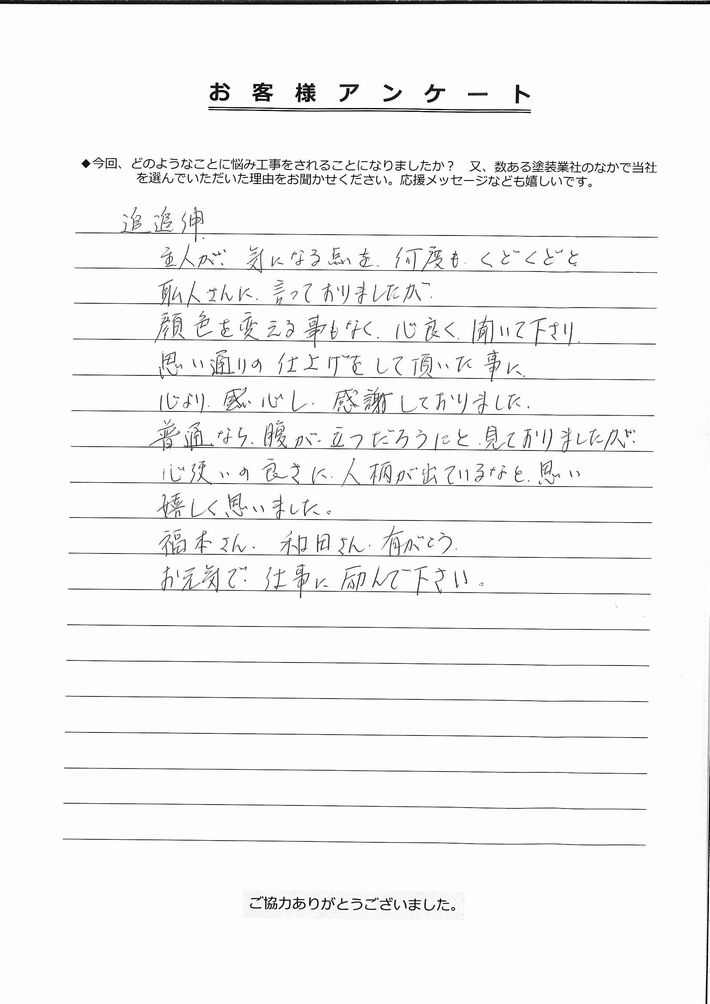 お客様アンケート
◆今回、どのようなことに悩み工事をされることになりましたか？　又、数ある塗装業社のなかで当社
を選んでいただいた理由をお聞かせください。応援メッセージなども嬉しいです。
追追伸
主人が、気になる点を、何度も、くどくどと
職人さんに、言っておりましたが、
顔色を変える事もなく、心良く、聞いて下さり、
思い通りの仕上げをして頂いた事に、
心より、感心し、感謝しておりました。
普通なら、腹が、立つだろうにと、見ておりましたが、
心使いの良さに、人柄が出ているなと、思い
嬉しく思いました。
福本さん、和田さん、有がとう。
お元気で、仕事に励んで下さい。
ご協力ありがとうございました。